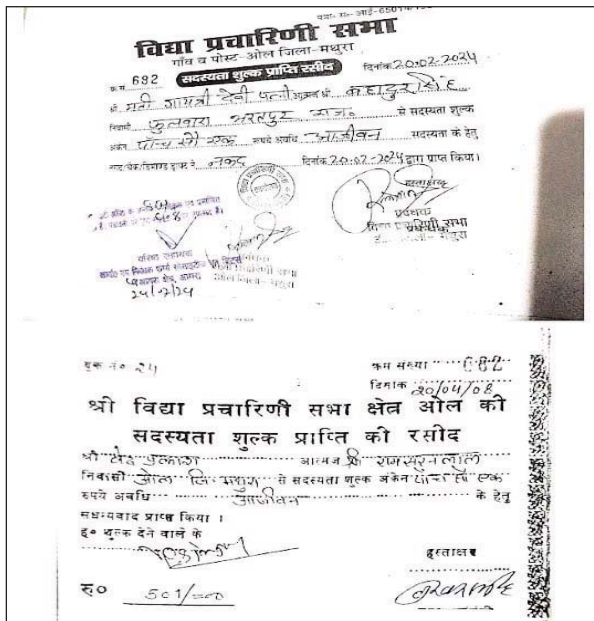 विद्या प्रचारिणी सभा
गाँव व पोस्ट-ओल जिला-मथुरा
क्रम 692 सदस्यता शुल्क प्राप्ति रसीद दिनांक 20.02-2024
श्री मती गायत्री देवी पत्नी आत्मज श्री बहादुर सिंह
निवासी फुलवारा भरतपुर राज० से सदस्यता शुल्क
अंकेन पाँच सौ एक रुपये अवधि आजीवन सदस्यता के हेतु
नगद/चैक/डिमाण्ड ड्राफ्ट नं नकद दिनांक 20.02-2024 द्वारा प्राप्त किया।
हस्ताक्षर
प्रबंधक
विद्या प्रचारिणी सभा
वरिष्ठ सहायक
24/2/24
बुक नं० 24 क्रम संख्या 682
दिनांक 20/04/08
श्री विद्या प्रचारिणी सभा क्षेत्र ओल की
सदस्यता शुल्क प्राप्ति की रसीद
श्री वेद प्रकाश आत्मज श्री रामसरन लाल
निवासी ओल जि० मथुरा से सदस्यता शुल्क अंकेन पांच सौ एक
रुपये अवधि आजीवन के हेतु
सधन्यवाद प्राप्त किया ।
ह० शुल्क देने वाले के
हस्ताक्षर
रु० 501/=00